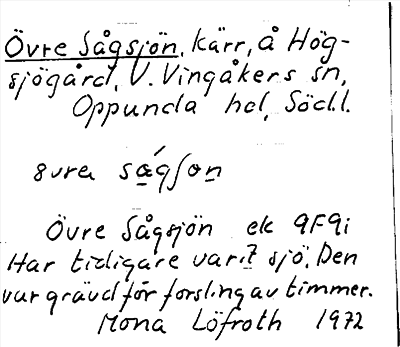 Övre Sågsjön, kärr, å Hög-
sjögård, V. Vingåkers sn,
Oppunda hd, Södl.
svrea ságʃon
Övre Sågsjön ek 9F9i
Har tidigare varit sjö. Den
var grävd för forsling av timmer.
Mona Löfroth 1972